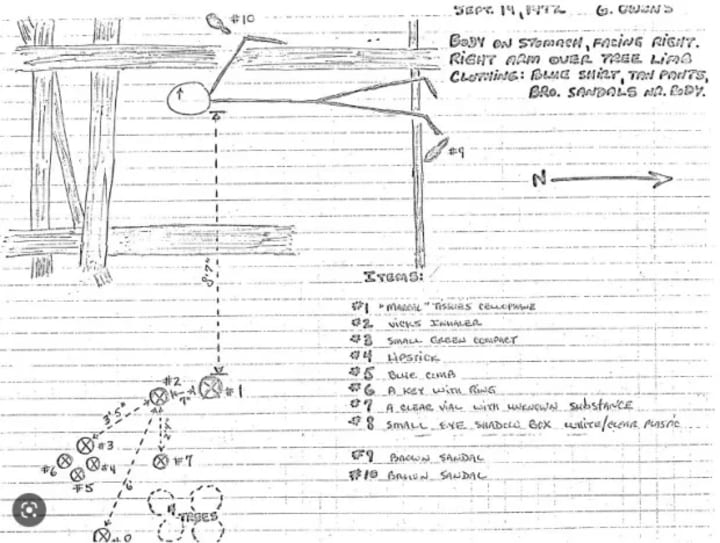 SEPT. 19, 1972 G. OWENS
BODY ON STOMACH, FACING RIGHT.
RIGHT ARM OVER TREE LIMB
CLOTHING: BLUE SHIRT, TAN PANTS,
BRO. SANDALS NR. BODY.
#10
#9
N
8'7"
ITEMS:
#1 "MARCAL" TISSUES CELLOPHANE
#2 VICKS INHALER
#3 SMALL GREEN COMPACT
#4 LIPSTICK
#5 BLUE COMB
#6 A KEY WITH RING
#7 A CLEAR VIAL WITH UNKNOWN SUBSTANCE
#8 SMALL EYE SHADOW BOX WHITE/CLEAR PLASTIC
#9 BROWN SANDAL
#10 BROWN SANDAL
#2
#1
7"
3'5"
#3
#6
#4
#5
#7
6'
TREES